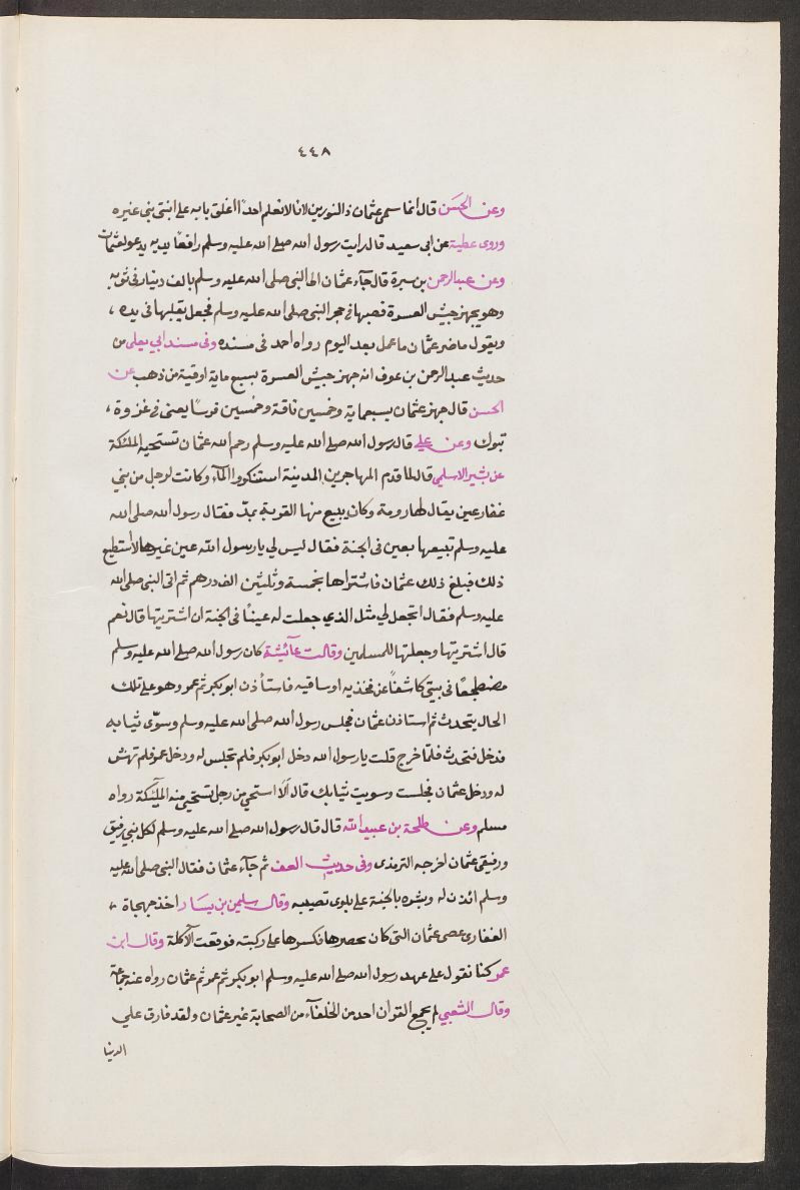 ٤٤٨
وعن الحسن قال انما سمي عثمان ذالنورين لانا لانعلم احدًا اغلق بابه على ابنتي نبي غيره
وروى عطية عن ابي سعيد قال رايت رسول الله صلى الله عليه وسلم رافعًا يديه يدعو لعثمان
وعن عبدالرحمن بن سمرة قال جآء عثمان الى النبي صلى الله عليه وسلم بالف دينار في ثوبه
وهو يجهز جيش العسرة فصبها في حجر النبي صلى الله عليه وسلم فجعل يقلبها في يده ،
ويقول ماضر عثمان ماعمل بعد اليوم رواه احمد في مسنده وفى مسند ابي يعلى من
حديث عبدالرحمن بن عوف انه جهز جيش العسرة بسبع ماية اوقية من ذهب عن
الحسن قال جهز عثمان بسبعماية وخمسين ناقة وخمسين فرسًا يعنى في غزوة ،
تبوك وعن علي قال رسول الله صلى الله عليه وسلم رحم الله عثمان تستحيه الملئكة
عن بشير الاسلمي قال لما قدم المهاجرين المدينة استنكروا المآء وكانت لرجل من بني
غفار عين يقال لها رومة وكان يبيع منها القربة بمدّ فقال رسول الله صلى الله
عليه وسلم تبيعها بعين في الجنة فقال ليس لي يارسول الله عين غيرها لا أستطيع
ذلك فبلغ ذلك عثمان فاشتراها بخمسة وثلثين الف درهم ثم اتى النبي صلى الله
عليه وسلم فقال اتجعل لي مثل الذي جعلت له عينًا في الجنة ان اشتريتها قال نعم
قال اشتريتها وجعلتها للمسلمين وقالت عآئشة كان رسول الله صلى الله عليه وسلم
مضطجعًا في بيتي كاشفًا عن فخذيه او ساقيه فاستأذن ابوبكر ثم عمر وهو على تلك
الحال يتحدث ثم استاذن عثمان فجلس رسول الله صلى الله عليه وسلم وسوّى ثيابه
فدخل فتحدث فلمّا خرج قلت يا رسول الله دخل ابوبكر فلم تجلس له ودخل عمر فلم تهش
له ودخل عثمان فجلست وسويت ثيابك قال ألا استحي من رجل تستحي منه الملٓئكة رواه
مسلم وعن طلحة بن عبيد الله قال قال رسول الله صلى الله عليه وسلم لكل نبي رفيق
ورفيقي عثمان اخرجه الترمذى وفى حديث القف ثم جآء عثمان فقال النبي صلى الله عليه
وسلم ائذن له وبشره بالجنة على بلوى تصيبه وقال سليمن بن يسار اخذ جهجاة ،
الغفارى عصى عثمان التي كان يحصرها فكسرها على ركبته فوقعت الآكلة وقال ابن
عمر كنا نقول على عهد رسول الله صلى الله عليه وسلم ابوبكر ثم عمر ثم عثمان رواه عنه جماعة
وقال الشعبي لم يجمع القران احد من الخلفآء من الصحابة غير عثمان ولقد فارق علي
الدنيا